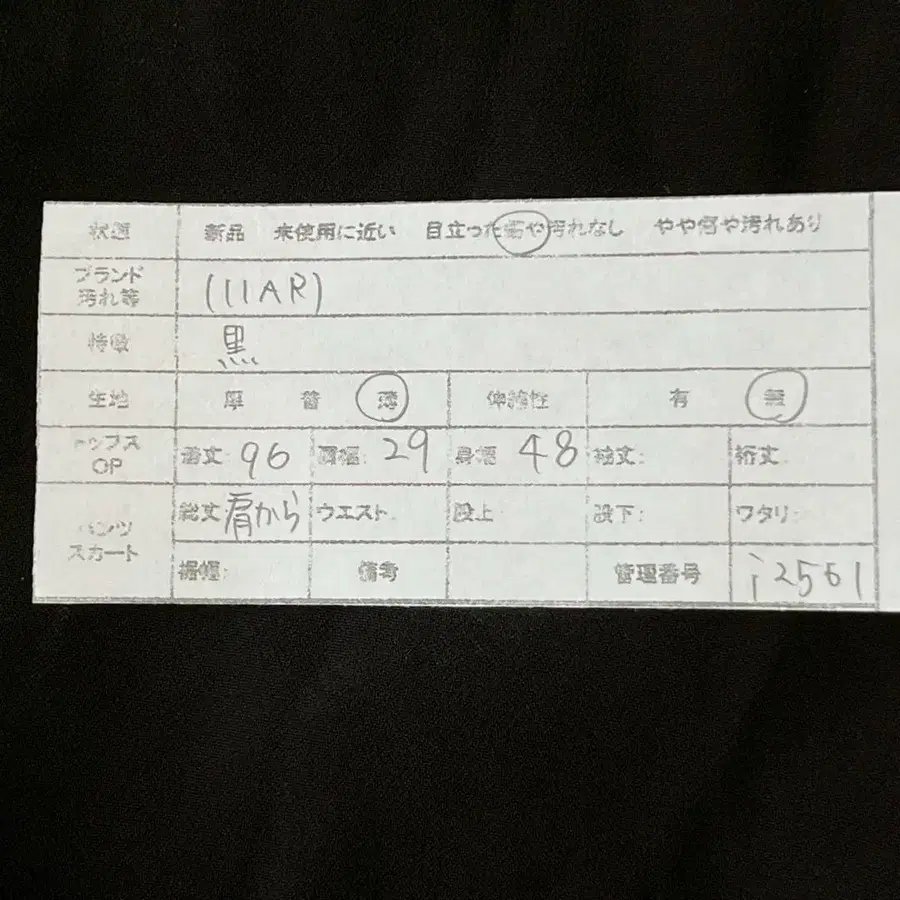 状態 新品 未使用に近い 目立った傷や汚れなし やや傷や汚れあり
ブランド
汚れ等 (11AR)
特徴 黒
生地 厚 普 薄 伸縮性 有 無
トップス
OP 着丈: 96 肩幅: 29 身幅 48 袖丈: 裄丈
パンツ
スカート 総丈 肩から ウエスト 股上 股下: ワタリ:
裾幅: 備考 管理番号 i2561